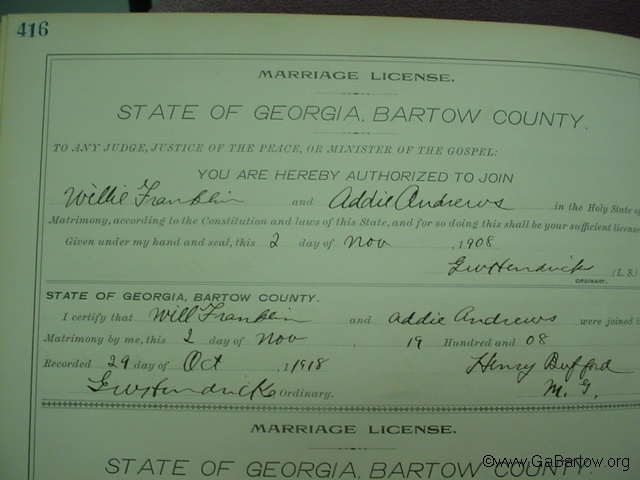 416
MARRIAGE LICENSE.
STATE OF GEORGIA, BARTOW COUNTY.
TO ANY JUDGE, JUSTICE OF THE PEACE, OR MINISTER OF THE GOSPEL:
YOU ARE HEREBY AUTHORIZED TO JOIN
Willie Franklin and Addie Andrews in the Holy State of
Matrimony, according to the Constitution and laws of this State, and for so doing this shall be your sufficient license
Given under my hand and seal, this 2 day of Nov , 1908
GW Hendricks (L. S.)
ORDINARY.
STATE OF GEORGIA, BARTOW COUNTY.
I certify that Will Franklin and Addie Andrews were joined i
Matrimony by me, this 2 day of Nov , 19 Hundred and 08
Recorded 29 day of Oct , 1918 Henry Bufford
GW Hendricks Ordinary. M. G.
MARRIAGE LICENSE.
STATE OF GEORGIA, BARTOW COUNTY.
©www.GaBartow.org